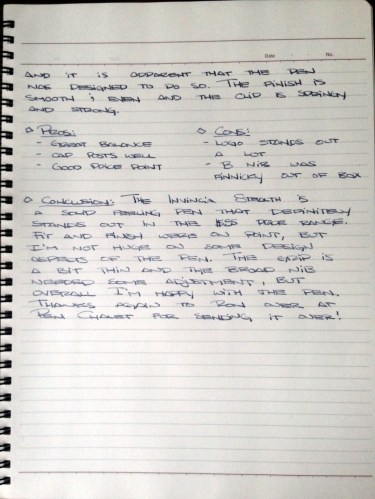 Date No.
AND IT IS APPARENT THAT THE PEN
WAS DESIGNED TO DO SO. THE FINISH IS
SMOOTH & EVEN AND THE CLIP IS SPRINGY
AND STRONG.
PROS:
- GREAT BALANCE
- CAP POSTS WELL
- GOOD PRICE POINT
CONS:
- LOGO STANDS OUT
A LOT
- B NIB WAS
FINNICKY OUT OF BOX
CONCLUSION: THE INVINCIA STEALTH IS
A SOLID FEELING PEN THAT DEFINITELY
STANDS OUT IN THE PRICE RANGE.
FIT AND FINISH WERE ON POINT, BUT
I'M NOT HUGE ON SOME DESIGN
ASPECTS OF THE PEN. THE GRIP IS
A BIT THIN AND THE BROAD NIB
NEEDED SOME ADJUSTMENT, BUT
OVERALL I'M HAPPY WITH THE PEN.
THANKS AGAIN TO RON OVER AT
PEN CHALET FOR SENDING IT OVER!